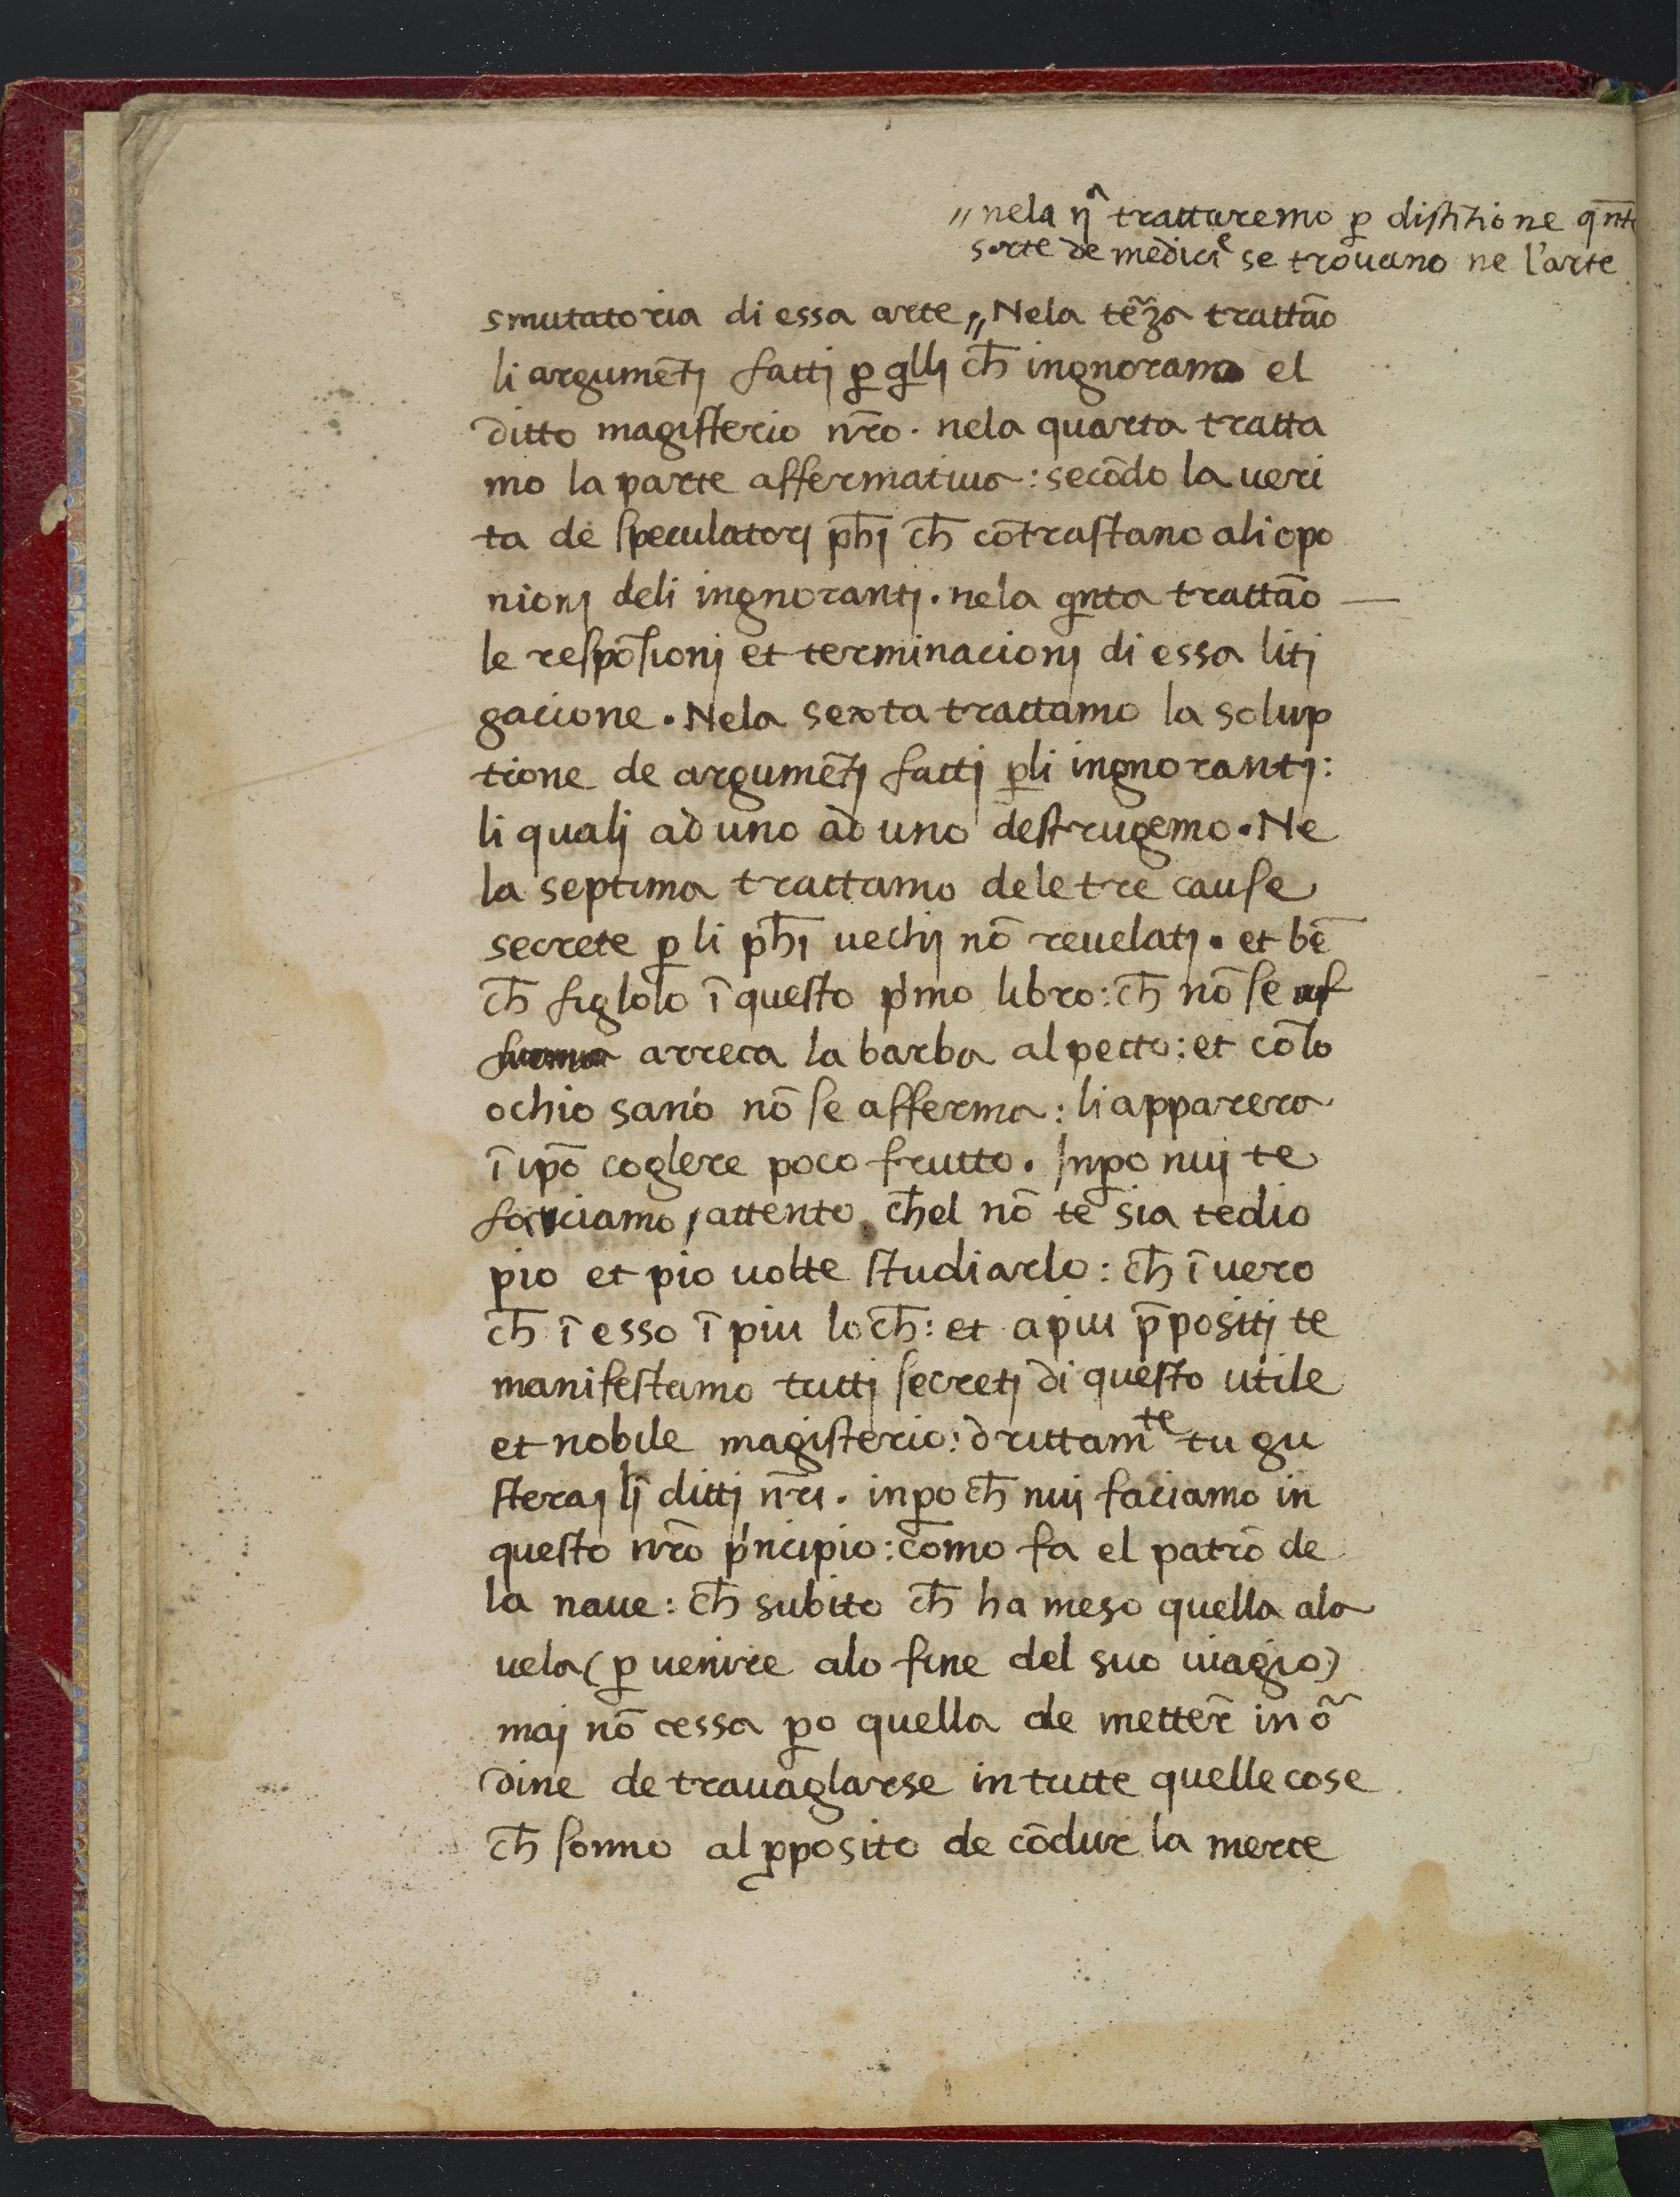 „ nela ijᵃ trattaremo ꝑ distĩtione qñte
sorte de mediciẽ se trouano ne l'arte
smutatoria di essa arte „ Nela tẽza trattão
li argumẽtj fattj ꝑ qllj ch̄ ingnoramo el
ditto magisterio nr̃o. nela quarta tratta
mo la parte affermatiua: secõdo la ueri
ta de speculatorj ph̄j ch̄ cõtrastano ali opo
nionj deli ingnorantj. nela qnta trattão
le respõsionj et terminacionj di essa liti
gacione. Nela sexta trattamo la solup
tione de argumẽtj fattj ꝑli ingnorantj:
li qualj ad uno ad uno destrugemo. Ne
la septima trattamo dele tre cause
secrete ꝑ li ph̄i uechij nõ reuelatj. et bẽ
ch̄ figlolo ĩ questo p'mo libro: ch̄ nõ se
arreca la barba al petto: et cõ lo
ochio sano nõ se afferma: li apparera
ĩ ip̃o coglere poco frutto. Inꝑo nuj te
facciamo attento ch̄el nõ te sia tedio
pio et pio uolte studiarlo: ch̄ ĩ uero
ch̄ ĩ esso ĩ piu loch̄: et a piu p̄positj te
manifestamo tuttj secretj di questo utile
et nobile magisterio: drittamᵗᵉ tu gu
steraj lj dittj nr̃i. inꝑo ch̄ nuj faciamo in
questo nr̃o p'ncipio: como fa el patrõ de
la naue: ch̄ subito ch̄ ha meso quella ala
uela (ꝑ uenire alo fine del suo uiagio)
maj nõ cessa ꝑo quella de metter̃ in õ
dine de trauaglarse in tutte quelle cose
ch̄ sonno al ꝓposito de cõdur la merce